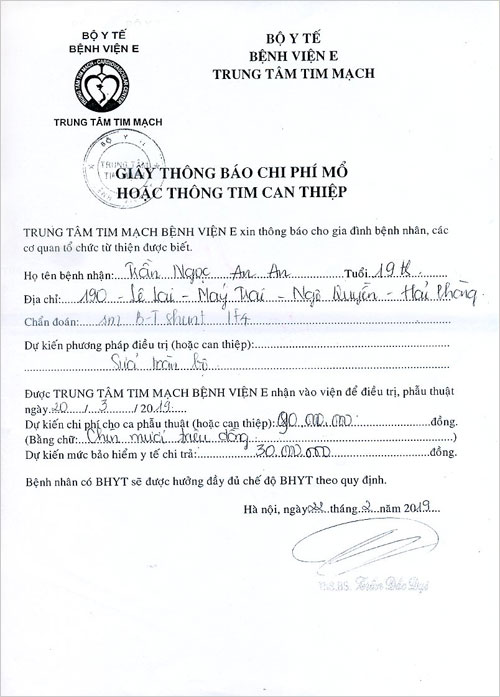 BỘ Y TẾ
BỆNH VIỆN E
TRUNG TÂM TIM MẠCH
BỘ Y TẾ
BỆNH VIỆN E
TRUNG TÂM TIM MẠCH
GIẤY THÔNG BÁO CHI PHÍ MỔ
HOẶC THÔNG TIM CAN THIỆP
TRUNG TÂM TIM MẠCH BỆNH VIỆN E xin thông báo cho gia đình bệnh nhân, các
cơ quan tổ chức từ thiện được biết.
Họ tên bệnh nhân: Trần Ngọc An An Tuổi 19th
Địa chỉ: 190 - Lê Lai - Máy Tơ - Ngô Quyền - Hải Phòng
Chẩn đoán: B-T shunt
Dự kiến phương pháp điều trị (hoặc can thiệp):
Sửa toàn bộ
Được TRUNG TÂM TIM MẠCH BỆNH VIỆN E nhận vào viện để điều trị, phẫu thuật
ngày 20 / 3 / 2019
Dự kiến chi phí cho ca phẫu thuật (hoặc can thiệp): 90.000.000 đồng.
(Bằng chữ: Chín mươi triệu đồng )
Dự kiến mức bảo hiểm y tế chi trả: 30.000.000 đồng.
Bệnh nhân có BHYT sẽ được hưởng đầy đủ chế độ BHYT theo quy định.
Hà nội, ngày 22 tháng 2 năm 2019